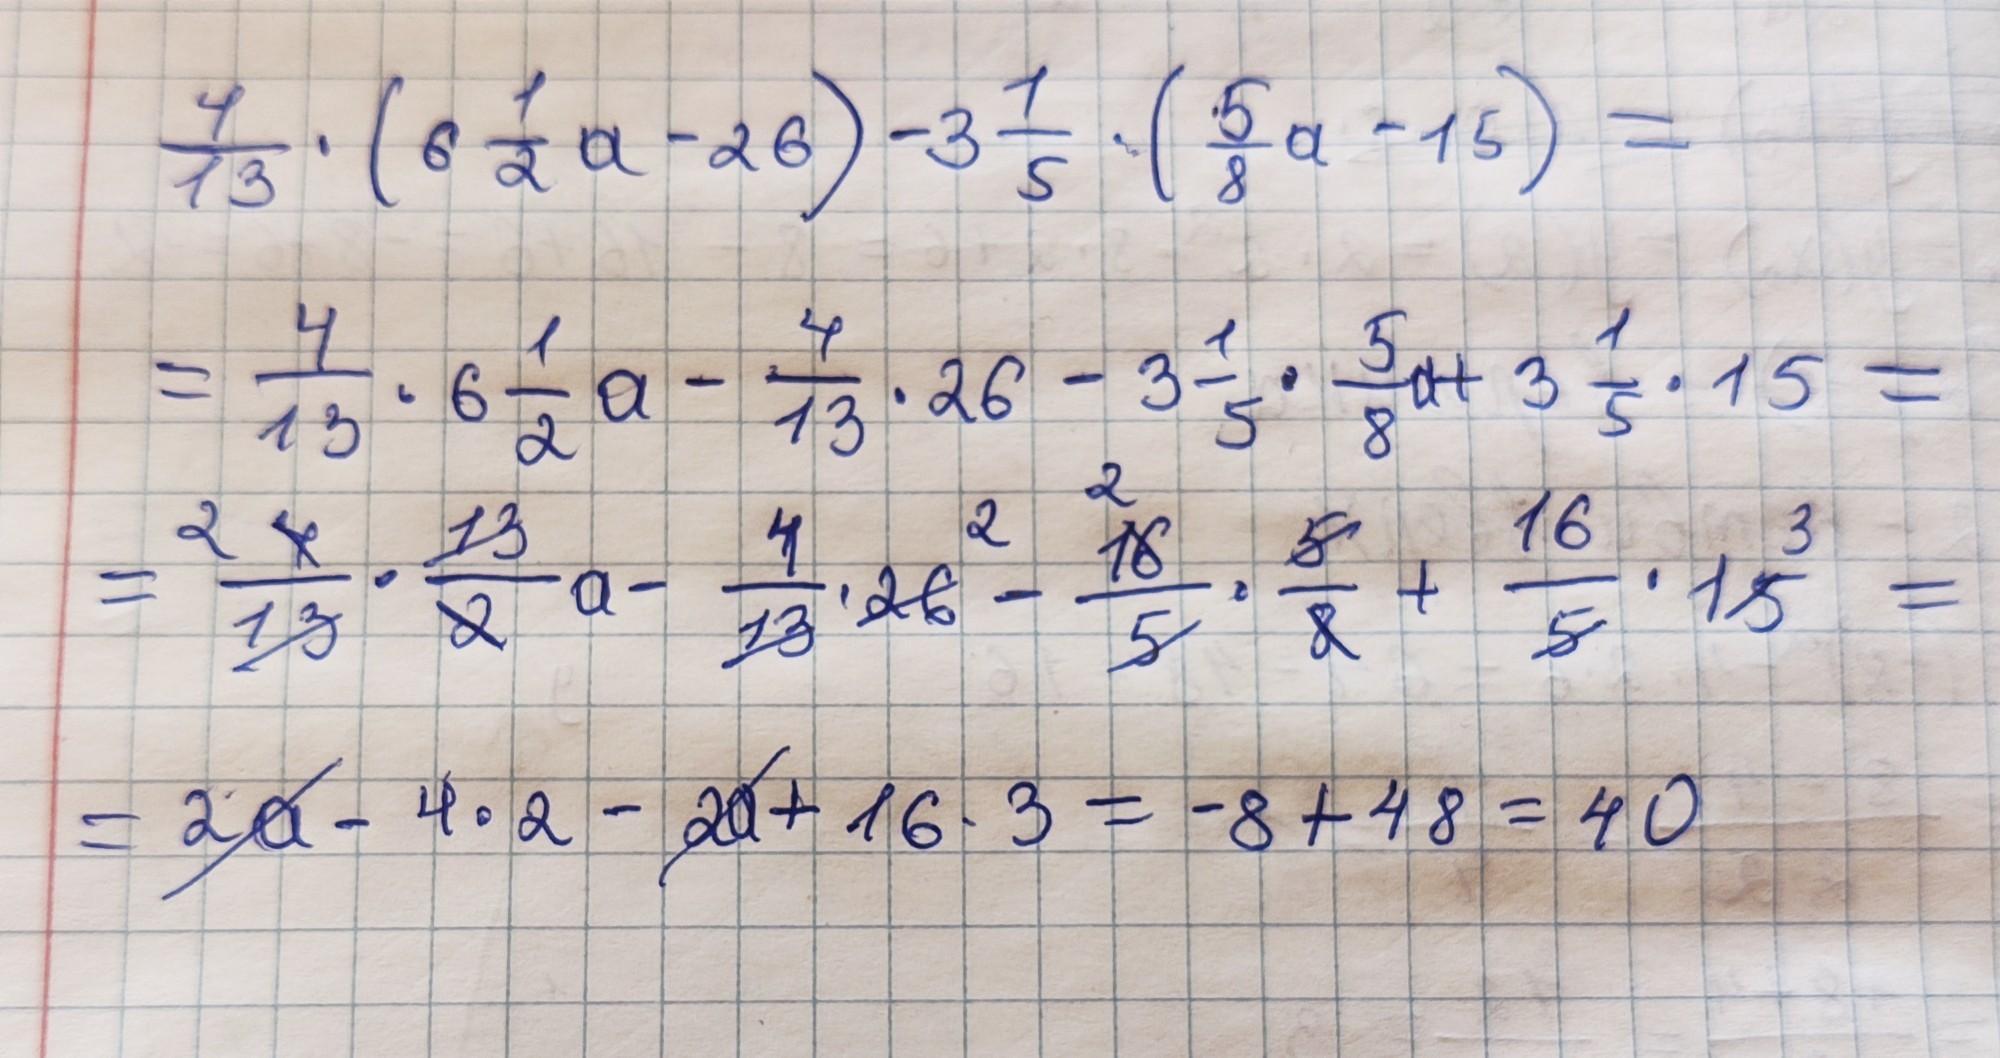 4/13 · (6 1/2 a - 26) - 3 1/5 · (5/8 a - 15) =
= 4/13 · 6 1/2 a - 4/13 · 26 - 3 1/5 · 5/8 a + 3 1/5 · 15 =
= 2 4/13 · 13/2 a - 4/13 · 26 2 - 2 16/5 · 5/8 + 16/5 · 15 3 =
= 2a - 4 · 2 - 2a + 16 · 3 = -8 + 48 = 40